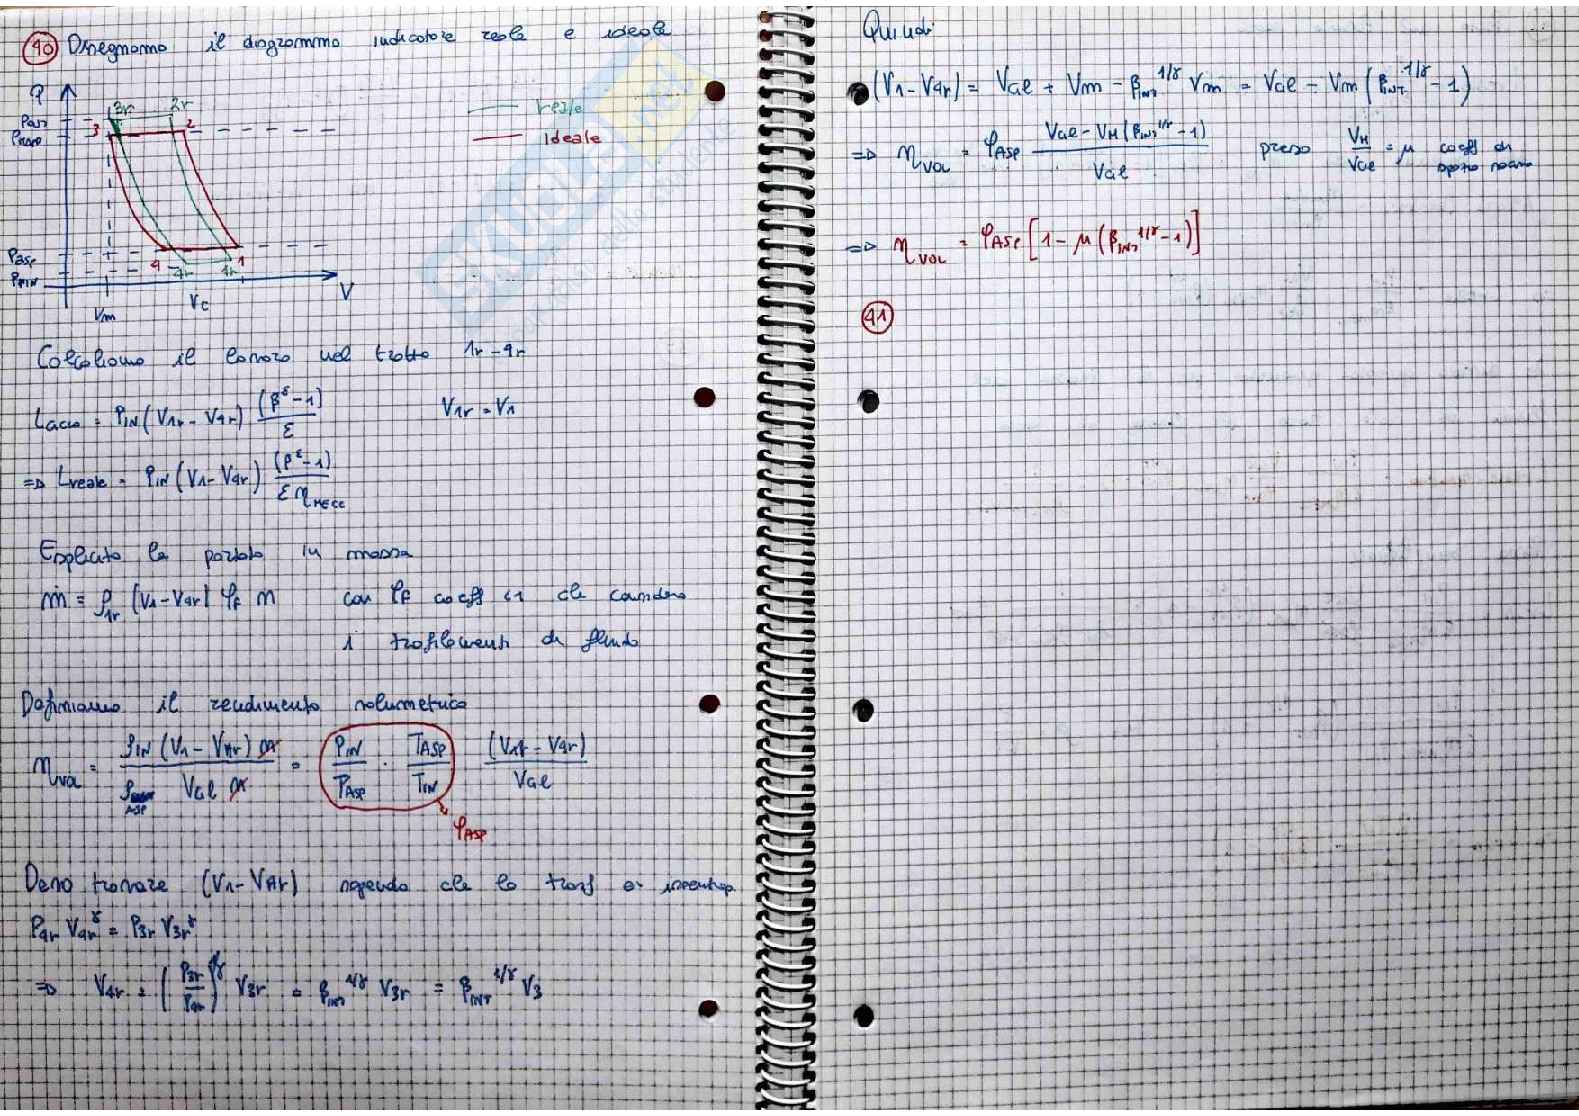 40 Disegnamo il diagramma indicatore reale e ideale
P
3r 2r
3 2
reale
ideale
Pasp
PMIN
4 4r 1r 1
Vm Vc V
Calcoliamo il lavoro nel tratto 1r-4r
= PIN (V1r - V4r) (β^ε - 1)/ε V1r = V1
=> Lreale = PIN (V1 - V4r) (β^ε - 1)/(ε ηMECC)
Esplicito la portata in massa
ṁ = ρ1r (V1 - V4r) φF n con φF coeff <1 che considera
i trafilamenti di fluido
Definiamo il rendimento volumetrico
ηvol = ρIN (V1 - V4r) n / ρASP Vcil n = PIN/PASP · TASP/TIN (V1r - V4r)/Vcil
φASP
Devo trovare (V1 - V4r) sapendo che la trasf è isoentrop
P4r V4r^γ = P3r V3r^γ
=> V4r = (P3r/P4r)^1/γ V3r = βINT^1/γ V3r = βINT^1/γ V3
Quindi
(V1 - V4r) = Vcil + Vm - βINT^1/γ Vm = Vcil - Vm (βINT^1/γ - 1)
=> ηVOL = φASP (Vcil - VM (βINT^1/γ - 1))/Vcil preso VM/Vcil = μ coeff di spazio nocivo
=> ηVOL = φASP [1 - μ (βINT^1/γ - 1)]
41